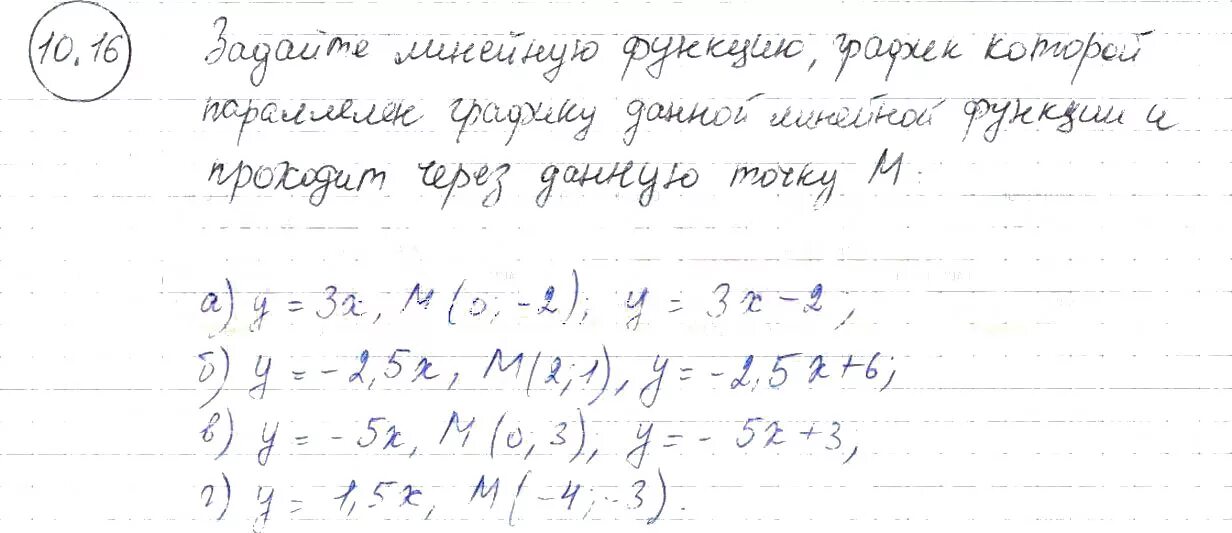 10.16 Задайте линейную функцию, график которой
параллелен графику данной линейной функции и
проходит через данную точку М:
а) y = 3x, M(0; -2); y = 3x - 2;
б) y = -2,5x, M(2; 1), y = -2,5x + 6;
в) y = -5x, M(0; 3); y = -5x + 3;
г) y = 1,5x, M(-4; -3).